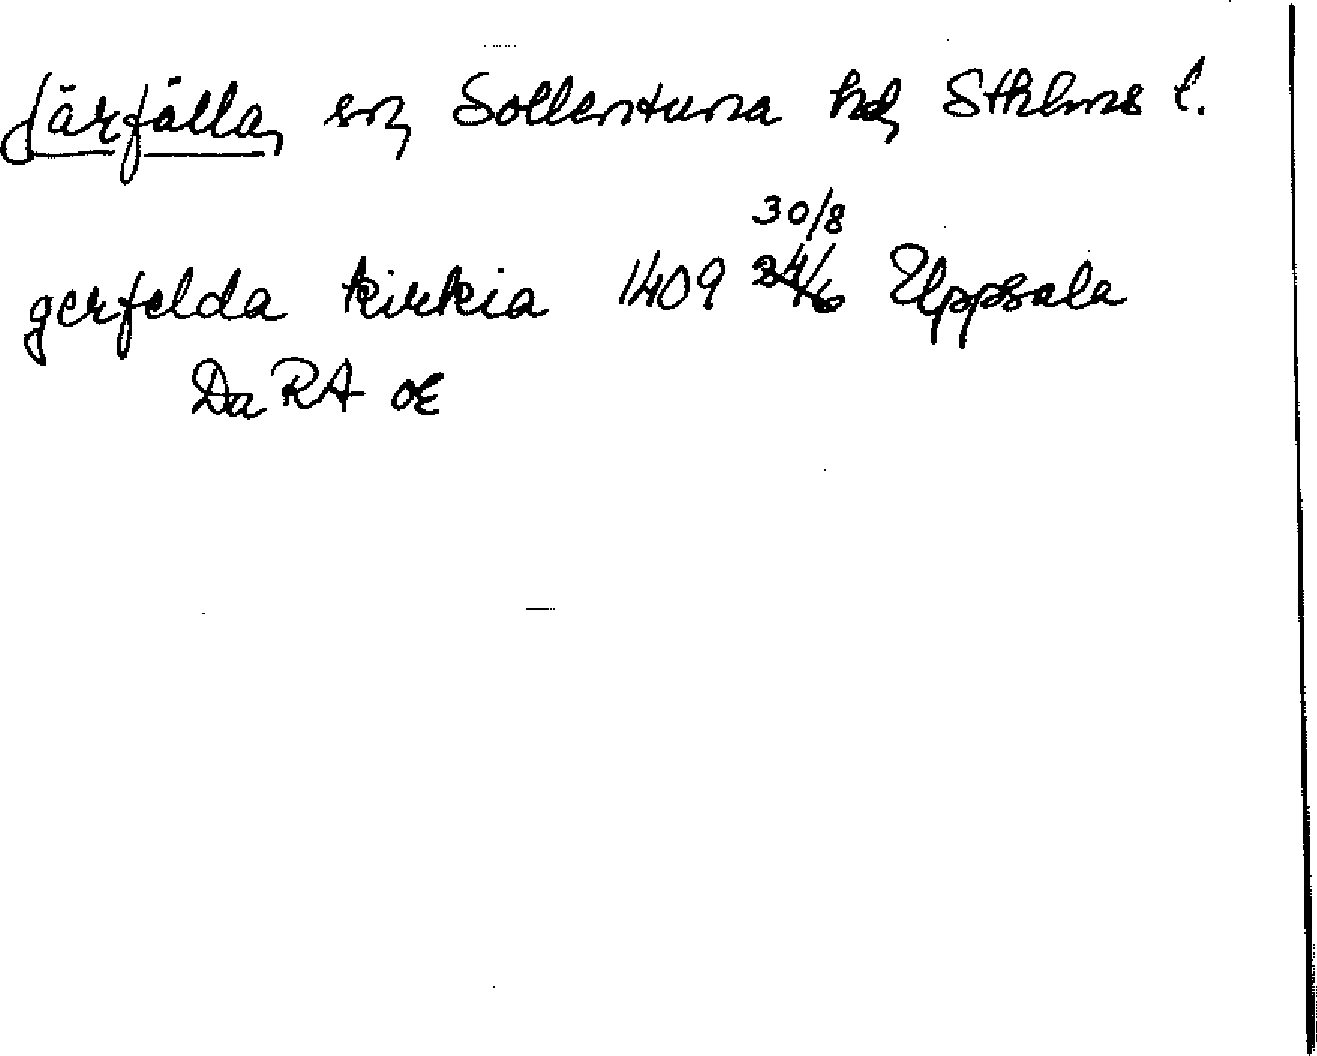 Järfälla, sn, Sollentuna hd, Sthlms l.
30/8
gerfelda kirkia 1409 24/6 Uppsala
Da RA or